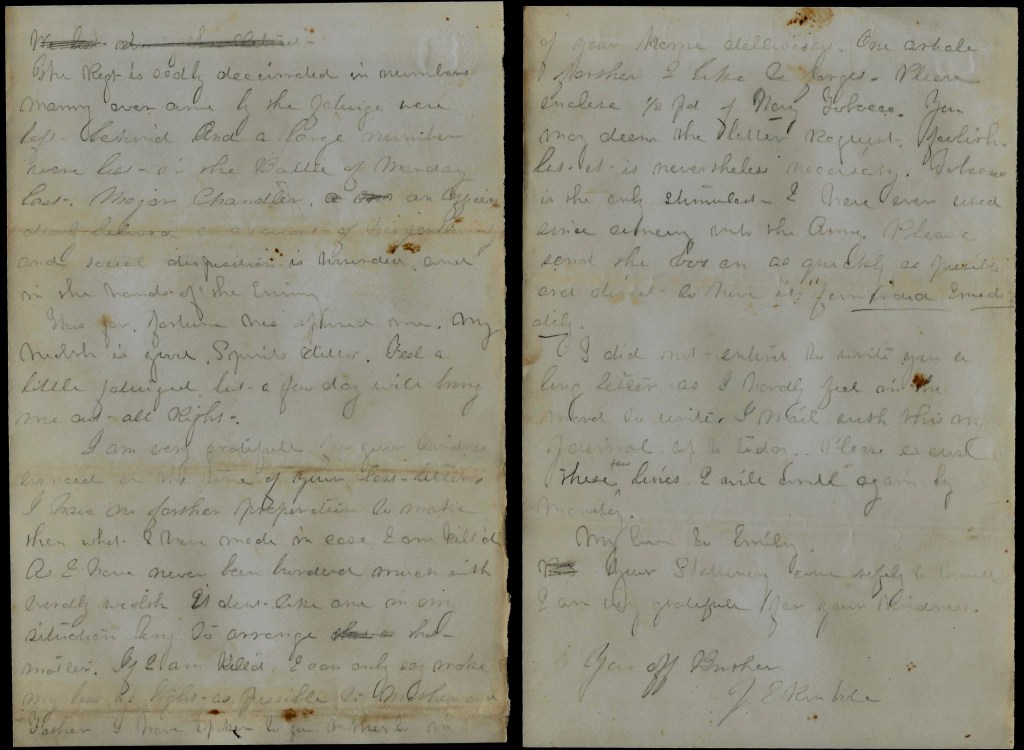 The Regt is sadly decimated in numbers
Manny over come by the fatuige were
left behind And a large number
were lost in the Battle of Monday
last. Major Chandler, an Officer
on account of his
and social disposition is wounded, and
in the hands of the Enimy.
Thus far, fortune has spared me. My
health is good. Spirits ditto. Feel a
little fatuiged but a few day will bring
me out all Right.
I am very gratefull for your kindness
at the time of your last letter.
I have no farther preperation to make
then what I have made in case I am kill'd
As I have never been burdend much with
wordly wealth It dont take one in my
situation long to arrange that
matter. If I am killd. I can only say make
my loss as light as possible to Mother and
Father I have spoken to you
of your home dellicacys. One article
farther I like to forget. Please
enclose 1/2 Pd of Navy Tobacco. You
may deem the latter Request foolish.
but it is nevertheless necessary. Tobacco
is the only stimulant I have ever used
since coming into the Army. Please
send the box on as quickly as possible
and direct to have it forwarded Imedi
ately.
I did not entend to write you a
long letter as I hardly feel in the
mood to write. I mail with this my
Journal up to today. Please excuse
these few lines. I will write again by
Monday.
My love to Emily.
Your Stationery came safely to hand
I am very gratefull for your kindness.
Your aff Brother
J E